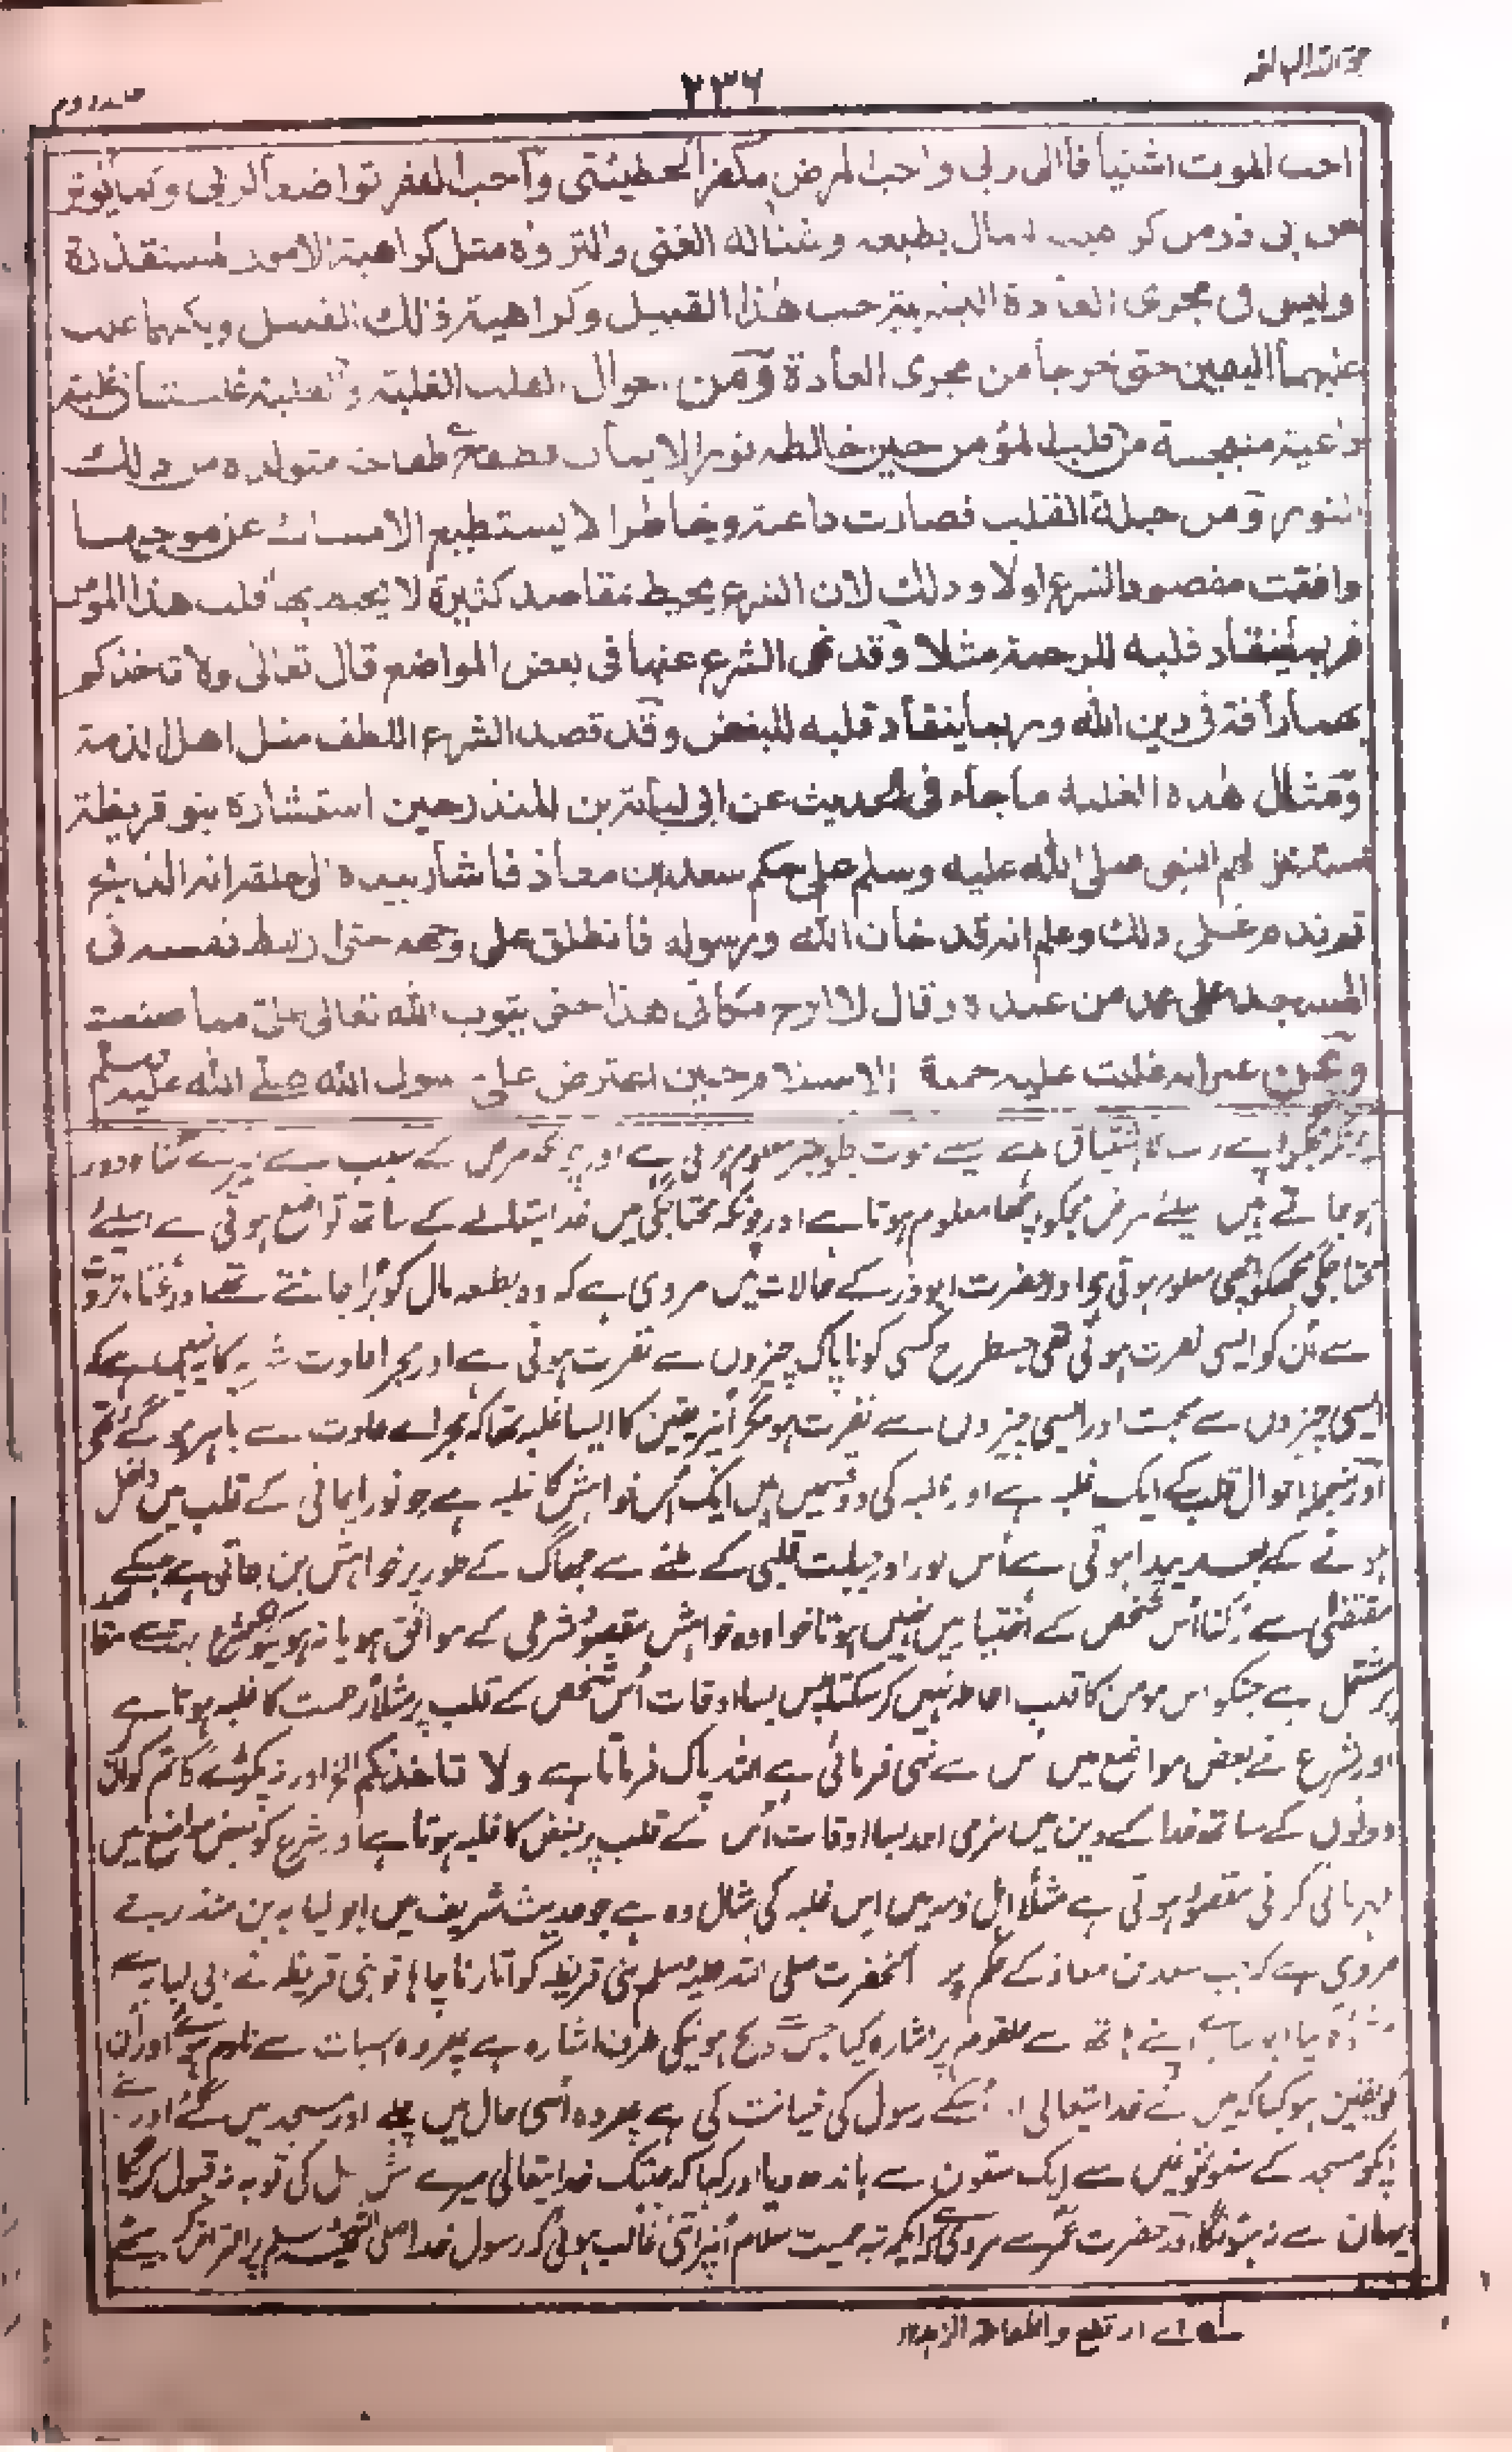 حجۃ اللہ البالغہ
۲۳۶
جلد دوم
احب الموت اشتياقا الى ربی واحب المرض مكفرا لخطيئتی وآحب الفقر تواضعا لربی وكما
ابی ذر من كراهيته المال بطبعه وشناٰله الغنی والثروة مثل كراهية الامور المستقذرة
وليس فی مجری العادة البشرية حب هذا القبيل وكراهية ذلك القبيل ولكنهما غلب
عليهما اليقين حتى خرجا من مجری العادة وَمن احوال القلب الغلبة والغلبة غلبتان غلبة
داعية منبجسة من قلب المؤمن حين خالطه نور الايمان طفاحة متولدة من ذلك
النور وَمن جبلة القلب فصارت داعية وخاطرا لا يستطيع الامساك عن موجبها
وافقت مقصود الشرع اولا وذلك لان الشرع يحيط بمقاصد كثيرة لا يحيط بها قلب هذا المؤمن
فربما ينقاد قلبه للرحمة مثلا وَقد نهى الشرع عنها فی بعض المواضع قال تعالى ولا تاخذكم
بهما رأفة فی دين الله وربما ينقاد قلبه للبغض وقد قصد الشرع اللطف مثل اهل الذمة
وَمثال هذه الغلبة ما جاء فی الحديث عن ابی لبابة بن المنذر حين استشاره بنو قريظة
استنزلهم النبی صلى الله عليه وسلم على حكم سعد بن معاذ فاشار بيده الى حلقه انه الذبح
ثم ندم على ذلك وعلم انه قد خان الله ورسوله فانطلق على وجهه حتى ارتبط نفسه فی
المسجد على عمد من عمده وقال لا ابرح مكانی هذا حتى يتوب الله تعالى علیّ مما صنعت
وَعن عمر انه غلبت عليه حمية الاسلام حين اعترض على رسول الله صلے الله عليه وسلم
اپنے رب کا اشتیاق ہے موت معلوم ہوتی ہے اور چونکہ مرض کے سبب سے میرے گناہ دور
ہو جاتے ہیں مرض مجکو اچھا معلوم ہوتا ہے اور چونکہ محتاجگی میں خدا تعالے کے ساتھ تواضع ہوتی ہے اسلئے
محتاجگی مجھکو اچھی معلوم ہوتی ہے اور حضرت ابوذر کے حالات میں مروی ہے کہ وہ بطبعہ مال کو بُرا جانتے تھے اور غنا و ثروت
سے اُن کو ایسی نفرت ہوتی تھی جسطرح کسی کو ناپاک چیزوں سے نفرت ہوتی ہے اور مجرا عادت بشریہ کا نہیں ہے کہ
ایسی چیزوں سے محبت اور ایسی چیزوں سے نفرت ہو مگر اُنپر یقین کا ایسا غلبہ تھا کہ مجراے عادت سے باہر ہو گئے تھے
اور منجملہ احوال قلب کے ایک غلبہ ہے اور غلبہ کی دو قسمیں ہیں ایک اُس خواہش کا غلبہ ہے جو نور ایمانی کے قلب میں داخل
ہونے کے بعد پیدا ہوتی ہے اُس نور اور جبلت قلبی کے ملنے سے جھاگ کے طور پر خواہش بن جاتی ہے جسکے
مقتضٰی سے رُکنا اُس شخص کے اختیار میں نہیں ہوتا خواہ وہ خواہش مقصود شرعی کے موافق ہو یا نہ ہو کیونکہ شرع بہت سے مقاصد
پر مشتمل ہے جنکو اس مومن کا قلب احاطہ نہیں کر سکتا پس بسا اوقات اُس شخص کے قلب پر مثلاً رحمت کا غلبہ ہوتا ہے
اور شرع نے بعض مواضع میں اُس سے نہی فرمائی ہے اللہ پاک فرماتا ہے ولا تاخذکم الخ اور نہ پکڑے گا تم کو اُن
دونوں کے ساتھ خدا کے دین میں نرمی اور بسا اوقات اُس کے قلب پر بغض کا غلبہ ہوتا ہے اور شرع کو بعض مواضع میں
مہربانی کرنی مقصود ہوتی ہے مثلاً اہل ذمہ میں اِس غلبہ کی مثال وہ ہے جو حدیث شریف میں ابو لبابہ بن منذر سے
مروی ہے کہ جب سعد بن معاذ کے حکم پر آنحضرت صلی اللہ علیہ وسلم نے بنی قریظہ کو اتارنا چاہا تو بنی قریظہ نے ابی لبابہ سے
مشورہ لیا ابو لبابہ نے اپنے ہاتھ سے حلقوم پر اشارہ کیا جس سے ذبح ہونیکی طرف اشارہ ہے پھر وہ اسبات سے نادم ہوئے اور اُن
کو یقین ہو گیا کہ میں نے خدا تعالی اور اُسکے رسول کی خیانت کی ہے پھر وہ اُسی حال میں چلے اور مسجد میں گئے اور اپنے
آپکو مسجد کے ستونوں میں سے ایک ستون سے باندھ دیا اور کہا کہ جبتک خدا تعالی میرے اس فعل کی توبہ نہ قبول کریگا
یہاں سے نہ ہٹونگا اور حضرت عمر سے مروی ہے کہ ایک مرتبہ حمیت اسلام اُنپر اتنی غالب ہوئی کہ رسول خدا صلی اللہ علیہ وسلم پر اعتراض کر بیٹھے
اے ارتفع والطفاحة الزبد